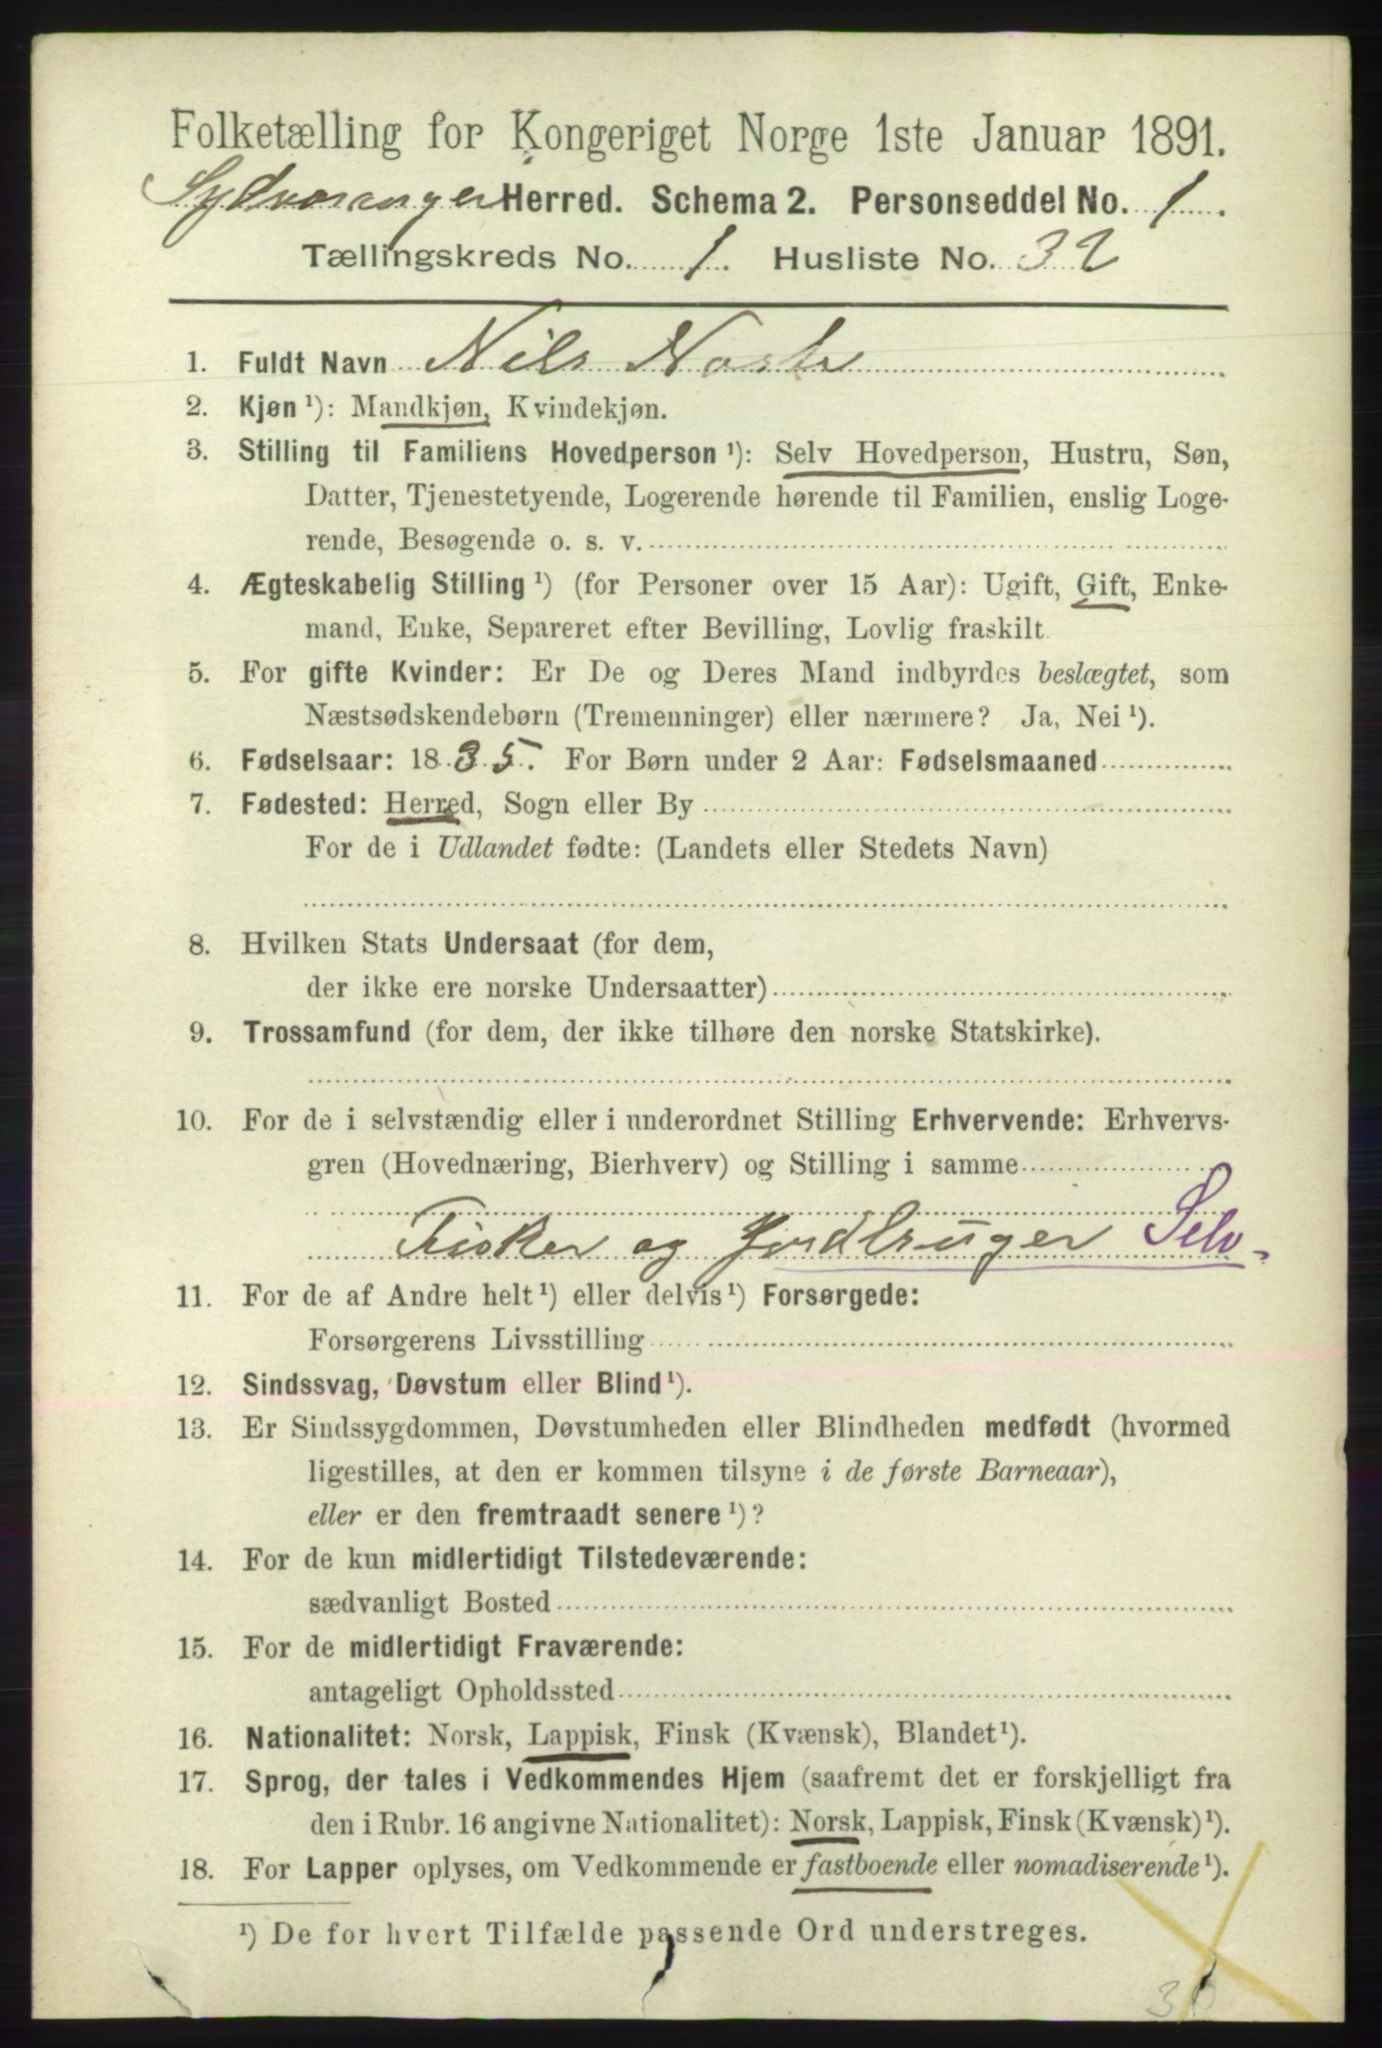 Folketælling for Kongeriget Norge 1ste Januar 1891.
Sydvaranger Herred. Schema 2. Personseddel No. 1.
Tællingskreds No. 1. Husliste No. 32
1. Fuldt Navn Nils
2. Kjøn ¹): Mandkjøn, Kvindekjøn.
3. Stilling til Familiens Hovedperson ¹): Selv Hovedperson, Hustru, Søn,
Datter, Tjenestetyende, Logerende hørende til Familien, enslig Loge-
rende, Besøgende o. s. v.
4. Ægteskabelig Stilling ¹) (for Personer over 15 Aar): Ugift, Gift, Enke-
mand, Enke, Separeret efter Bevilling, Lovlig fraskilt.
5. For gifte Kvinder: Er De og Deres Mand indbyrdes beslægtet, som
Næstsødskendebørn (Tremenninger) eller nærmere? Ja, Nei ¹).
6. Fødselsaar: 1835. For Børn under 2 Aar: Fødselsmaaned
7. Fødested: Herred, Sogn eller By
For de i Udlandet fødte: (Landets eller Stedets Navn)
8. Hvilken Stats Undersaat (for dem,
der ikke ere norske Undersaatter)
9. Trossamfund (for dem, der ikke tilhøre den norske Statskirke).
10. For de i selvstændig eller i underordnet Stilling Erhvervende: Erhvervs-
gren (Hovednæring, Bierhverv) og Stilling i samme
Fisker og Jordbruger Selv.
11. For de af Andre helt ¹) eller delvis ¹) Forsørgede:
Forsørgerens Livsstilling
12. Sindssvag, Døvstum eller Blind ¹).
13. Er Sindssygdommen, Døvstumheden eller Blindheden medfødt (hvormed
ligestilles, at den er kommen tilsyne i de første Barneaar),
eller er den fremtraadt senere ¹)?
14. For de kun midlertidigt Tilstedeværende:
sædvanligt Bosted
15. For de midlertidigt Fraværende:
antageligt Opholdssted
16. Nationalitet: Norsk, Lappisk, Finsk (Kvænsk), Blandet ¹).
17. Sprog, der tales i Vedkommendes Hjem (saafremt det er forskjelligt fra
den i Rubr. 16 angivne Nationalitet): Norsk, Lappisk, Finsk (Kvænsk) ¹).
18. For Lapper oplyses, om Vedkommende er fastboende eller nomadiserende ¹).
¹) De for hvert Tilfælde passende Ord understreges.